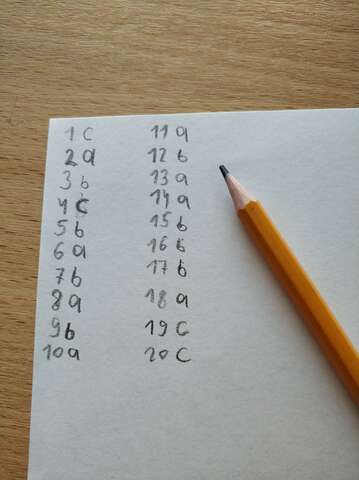 1 c
2 a
3 b
4 c
5 b
6 a
7 b
8 a
9 b
10 a
11 a
12 b
13 a
14 a
15 b
16 b
17 b
18 a
19 c
20 c